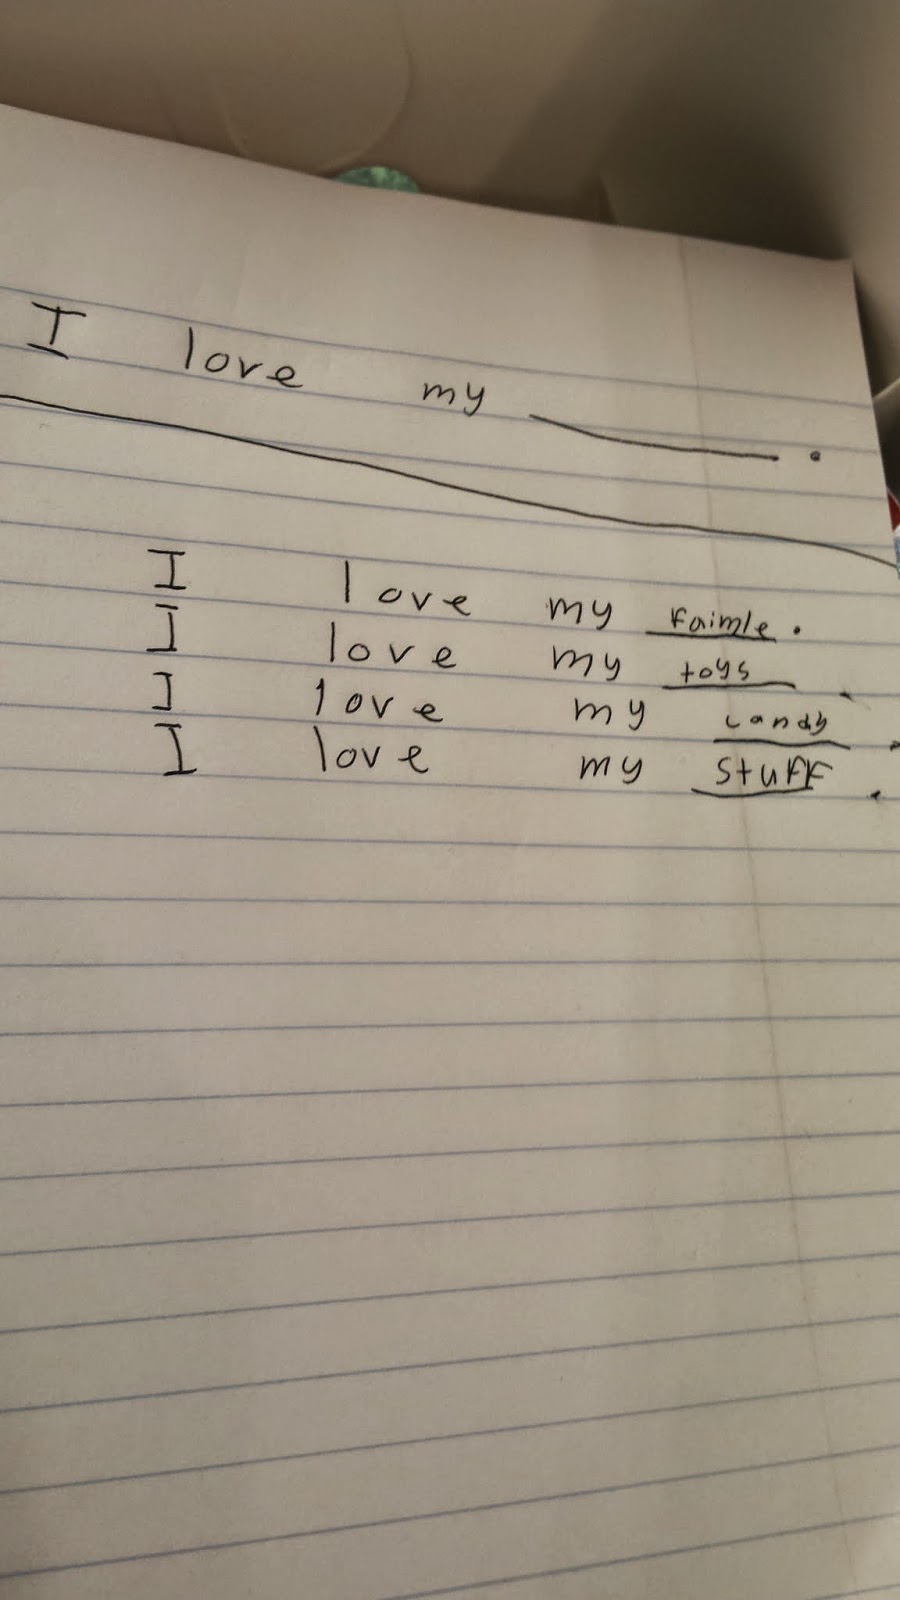 I love my ______.
I love my faimle.
I love my toys.
I love my candy.
I love my stuff.